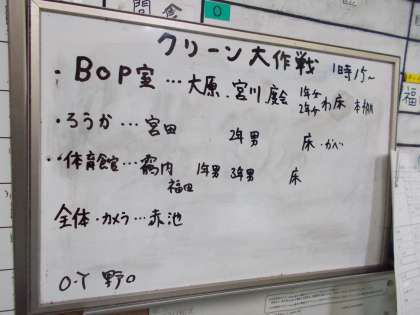 クリーン大作戦 1時15~
・BOP室…大原.宮川 度会 1年女 2年女 わ床 本棚
・ろうか…宮田 2年男 床・かべ
・体育館…内 1年男 3年男 床
福田
全体・カメラ…赤池
O.Y 野口
0
福